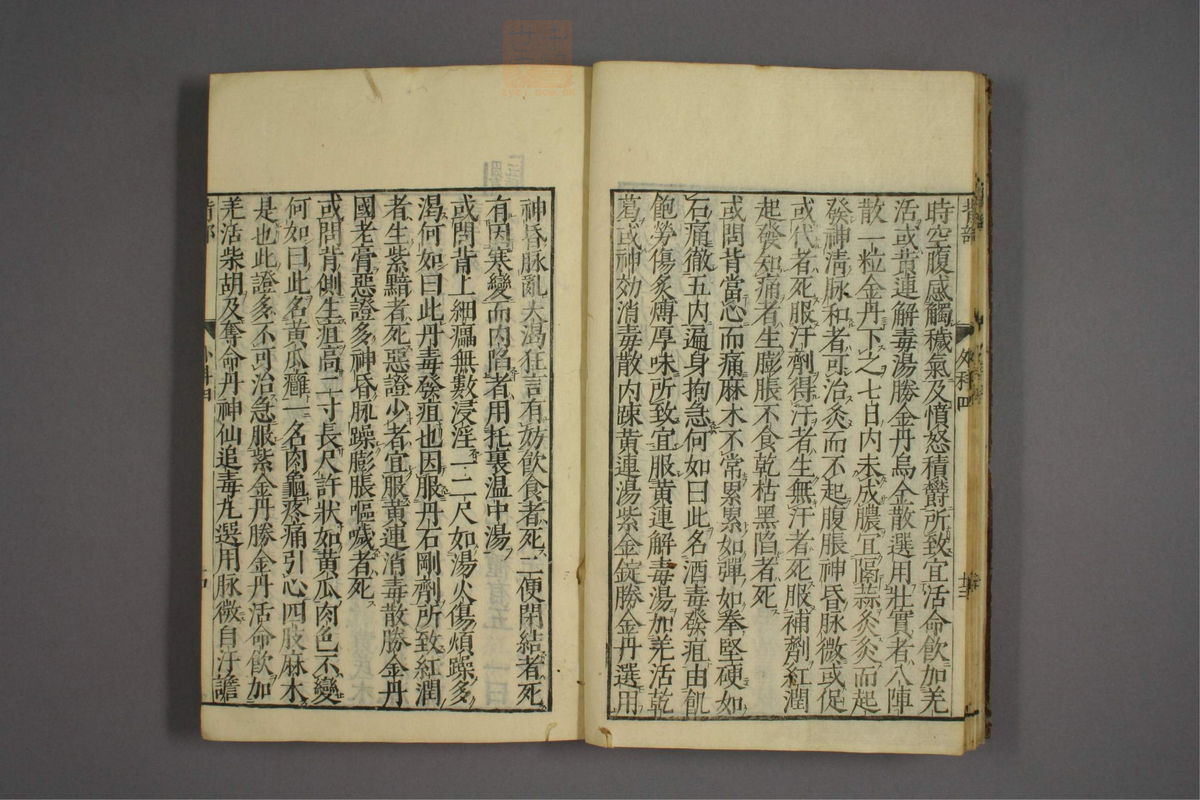 時空腹感觸穢氣及憤怒積欝所致宜活命飲加羌
活或黃連解毒湯勝金丹烏金散選用壯實者八陣
散一粒金丹下之七日内未成膿宜隔蒜灸灸而起
發神清脉和者可治灸而不起腹脹神昏脉微或促
或代者死服汗劑得汗者生無汗者死服補劑紅潤
起發知痛者生膨脹不食乾枯黑陷者死
或問背當心而痛麻木不常累累如彈如拳堅硬如
石痛徹五内遍身拘急何如曰此名酒毒發疽由飢
飽勞傷炙煿厚味所致宜服黃連解毒湯加羌活乾
葛或神効消毒散内踈黃連湯紫金錠勝金丹選用
背部
外科四
神昏脉亂大渴狂言有妨飲食者死二便閉結者死
有因寒變而内陷者用托裏温中湯
或問背上細癗無數浸淫一二尺如湯火傷煩躁多
渴何如曰此丹毒發疽也因服丹石剛劑所致紅潤
者生紫黯者死惡證少者宜服黃連消毒散勝金丹
國老膏惡證多神昏脉躁膨脹嘔噦者死
或問背側生疽高二寸長尺許狀如黃瓜肉色不變
何如曰此名黃瓜癰一名肉龜疼痛引心四肢麻木
是也此證多不可治急服紫金丹勝金丹活命飲加
羌活柴胡及奪命丹神仙追毒丸選用脉微自汗譫